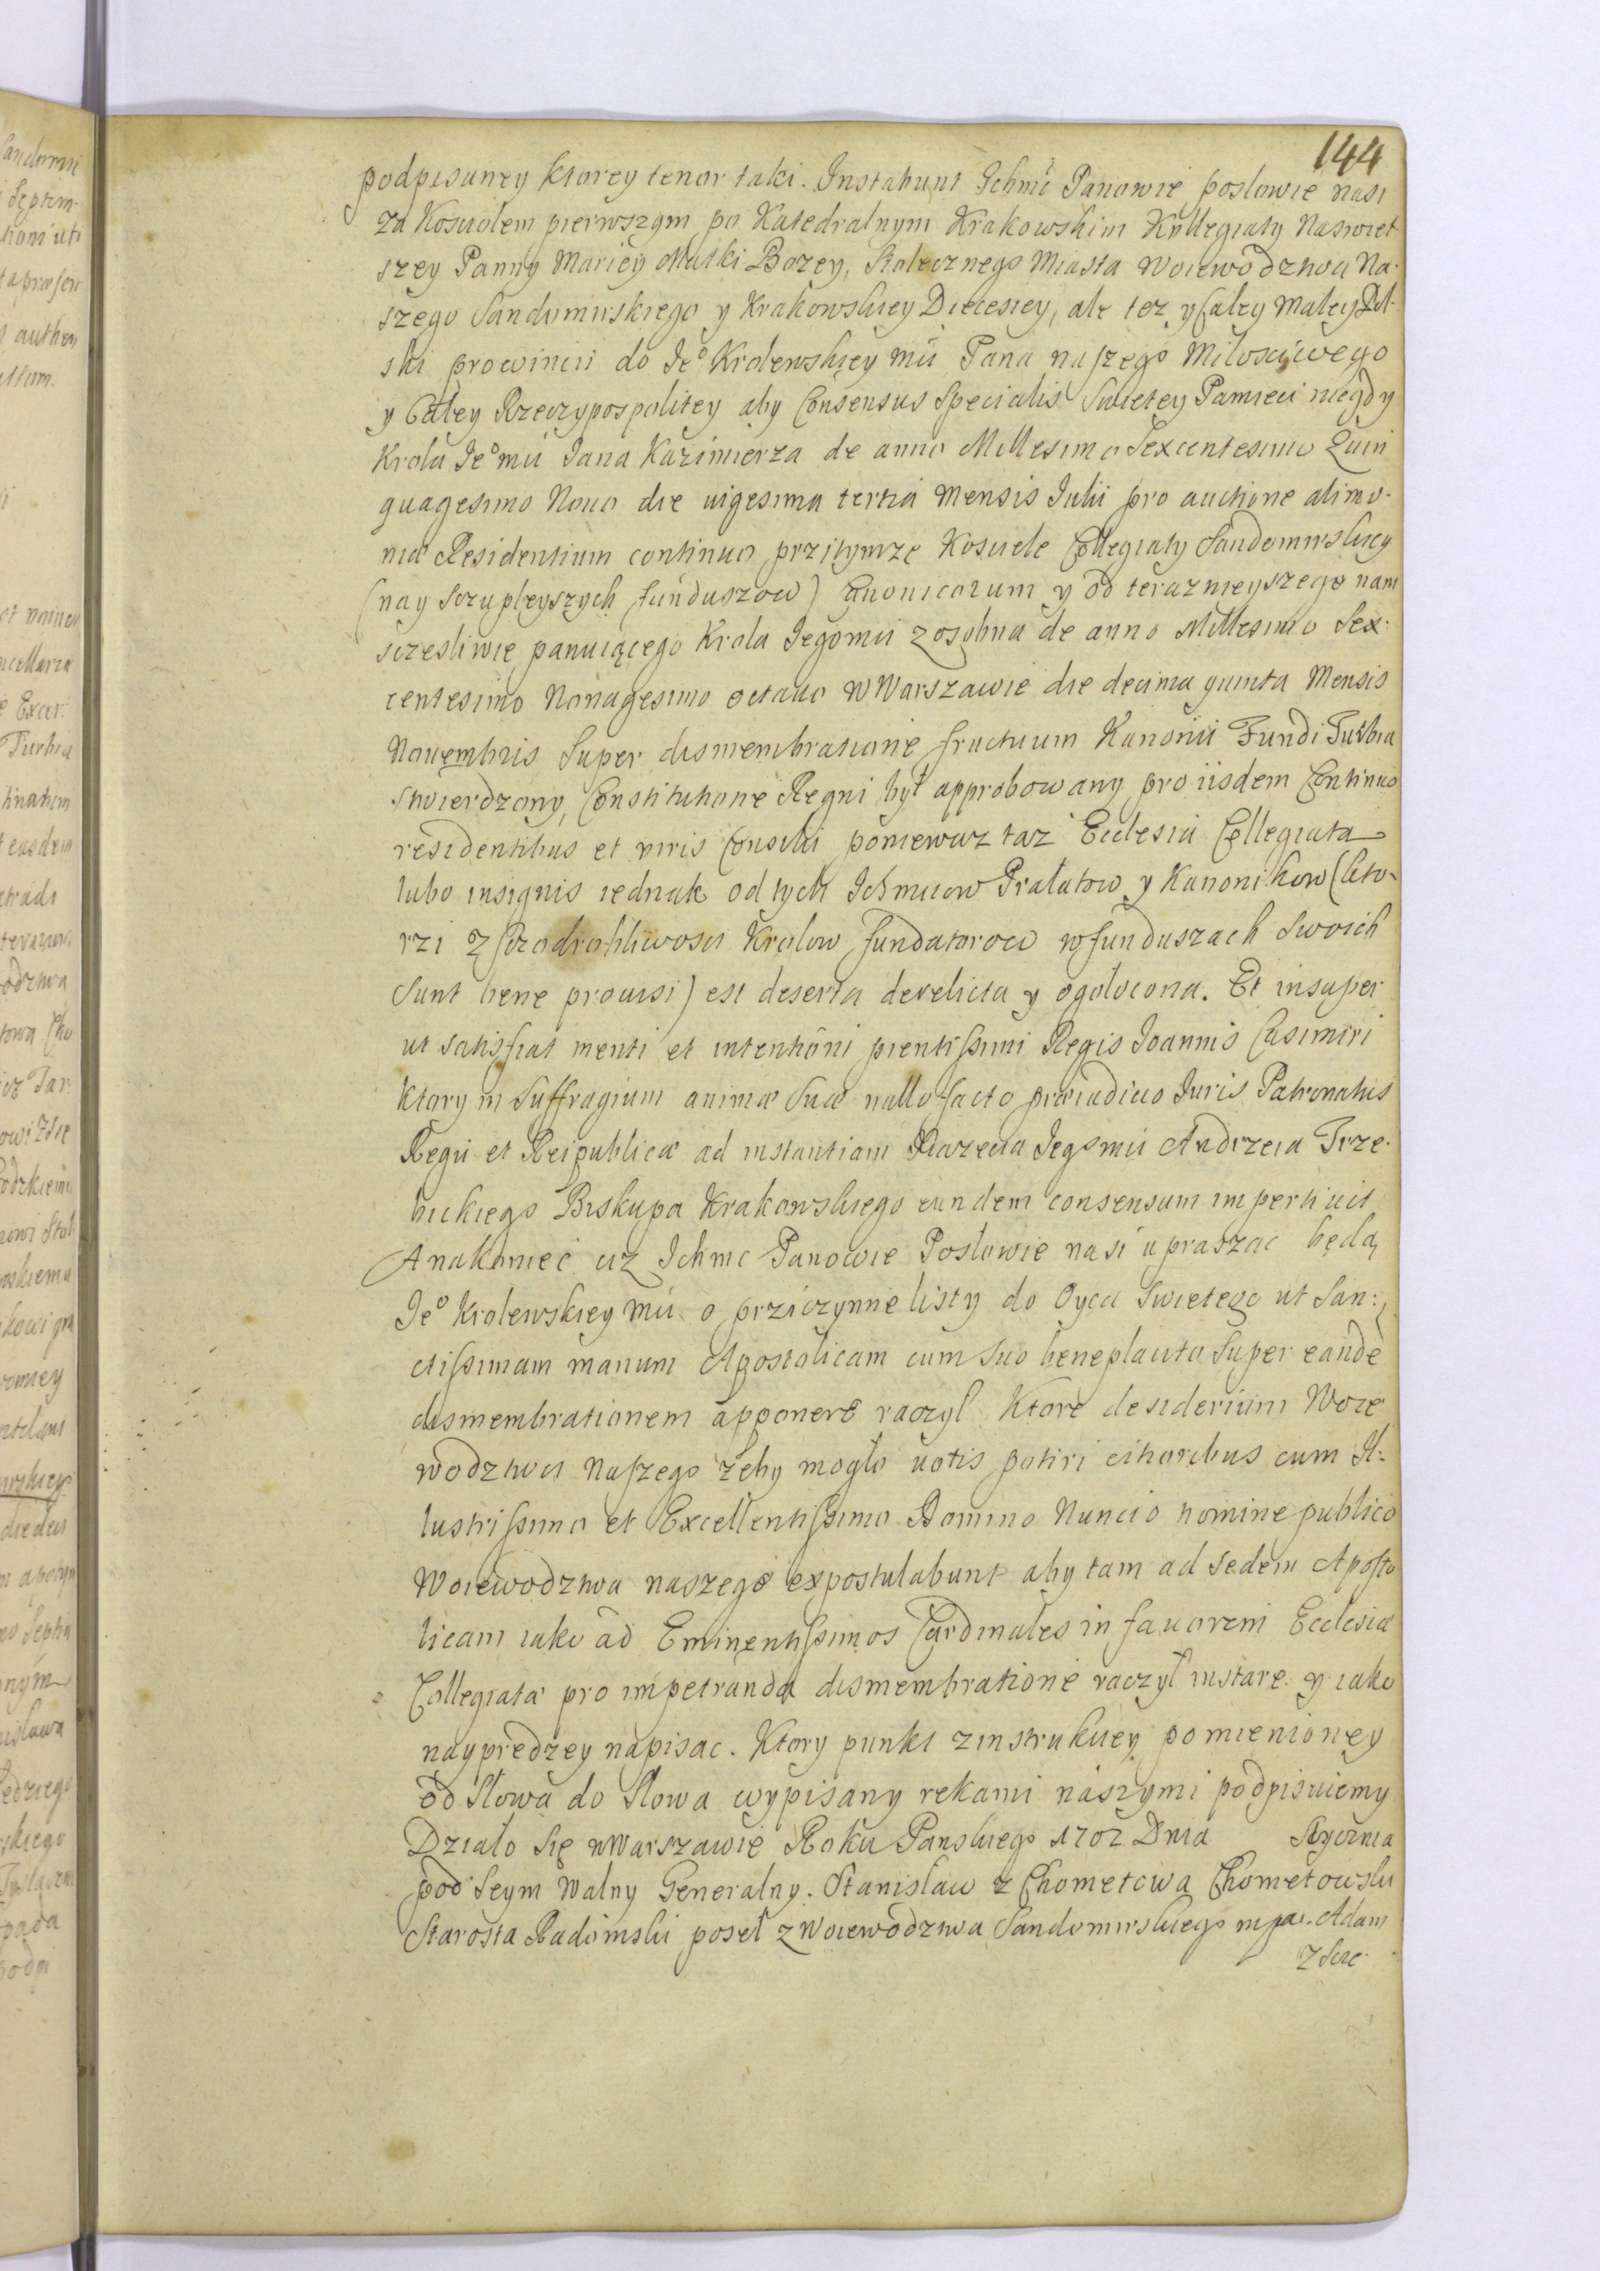 144
podpisaney ktorey tenor taki. Instabunt Ichmć Panowie posłowie nasi
za Kosciołem pierwszym po Katedralnym Krakowskim Kollegiaty Naswiet
szey Panny Mariey Matki Bozey, Stołecznego Miasta Woiewodztwa Na-
szego Sandomirskiego y Krakowskiey Diecesiey, ale tez y Całey Małey Pol-
ski prowincii do Jeo Krolewskiey mći Pana naszego Miłosciwego
y Całey Rzeczypospolitey aby Consensus Specialis Swietey Pamieci niegdy
Krola Jeo mći Jana Kazimierza de anno Millesimo Sexcentesimo Quin
quagesimo Nono die uigesima tertia Mensis Julii pro auctione alimo-
niæ Residentium continuo przitymze Kosciele Collegiaty Sandomirskiey
(nay sczupleyszych funduszow) Canonicorum y od teraznieyszego nam
sczesliwie panuiącego Krola Jegomći zosobna de anno Millesimo Sex-
centesimo Nonagesimo octauo w Warszawie die decima quinta Mensis
Nouembris Super dismembratione fructuum Kanonii Fundi Turbia
stwierdzony, Constitutione Regni był approbowany pro iisdem Continuo
residentibus et viris Consulti poniewaz taz Ecclesia Collegiata
lubo insignis iednak od tych Ichmciow Prałatow y Kanonikow (kto-
rzi z sczodrobliwosci Krolow fundatorow w funduszach Swoich
Sunt bene prouisi) est deserta derelicta y ogołocona. Et insuper
ut satisfiat menti et intentioni pientissimi Regis Joannis Casimiri
ktory in Suffragium animæ Suæ nullo facto præiudicio Juris Patronatus
Regii et Reipublicæ ad instantiam Xiazecia Jegomći Andrzeia Trze-
bickiego Biskupa Krakowskiego eundem consensum impertiuit
Anakoniec uz Ichmc Panowie Posłowie nasi upraszac będą
Jeo Krolewskiey mći o prziczynne listy do Oyca Swietego ut San-
ctissimam manum Apostolicam cum Suo beneplacito Super eande
dismembrationem apponere raczył Ktore desiderium Woie
wodztwa Naszego zeby mogło uotis potiri citioribus cum Il-
lustrissimo et Excellentissimo Domino Nuncio nomine publico
Woiewodztwa naszego expostulabunt aby tam ad Sedem Aposto
licam iako ad Eminentissimos Cardinales in fauorem Ecclesiæ
Collegiatæ pro impetranda dismembratione raczył instare y iako
nayprędzey napisac. Ktory punkt z instrukciey pomienioney
od Słowa do Słowa wypisany rekami naszymi podpisuiemy
Działo Się w Warszawie Roku Panskiego 1702 Dnia Stycznia
pod Seym Walny Generalny. Stanisław z Chometowa Chometowski
Starosta Radomski poseł z Woiewodztwa Sandomirskiego mpa. Adam
z Sie